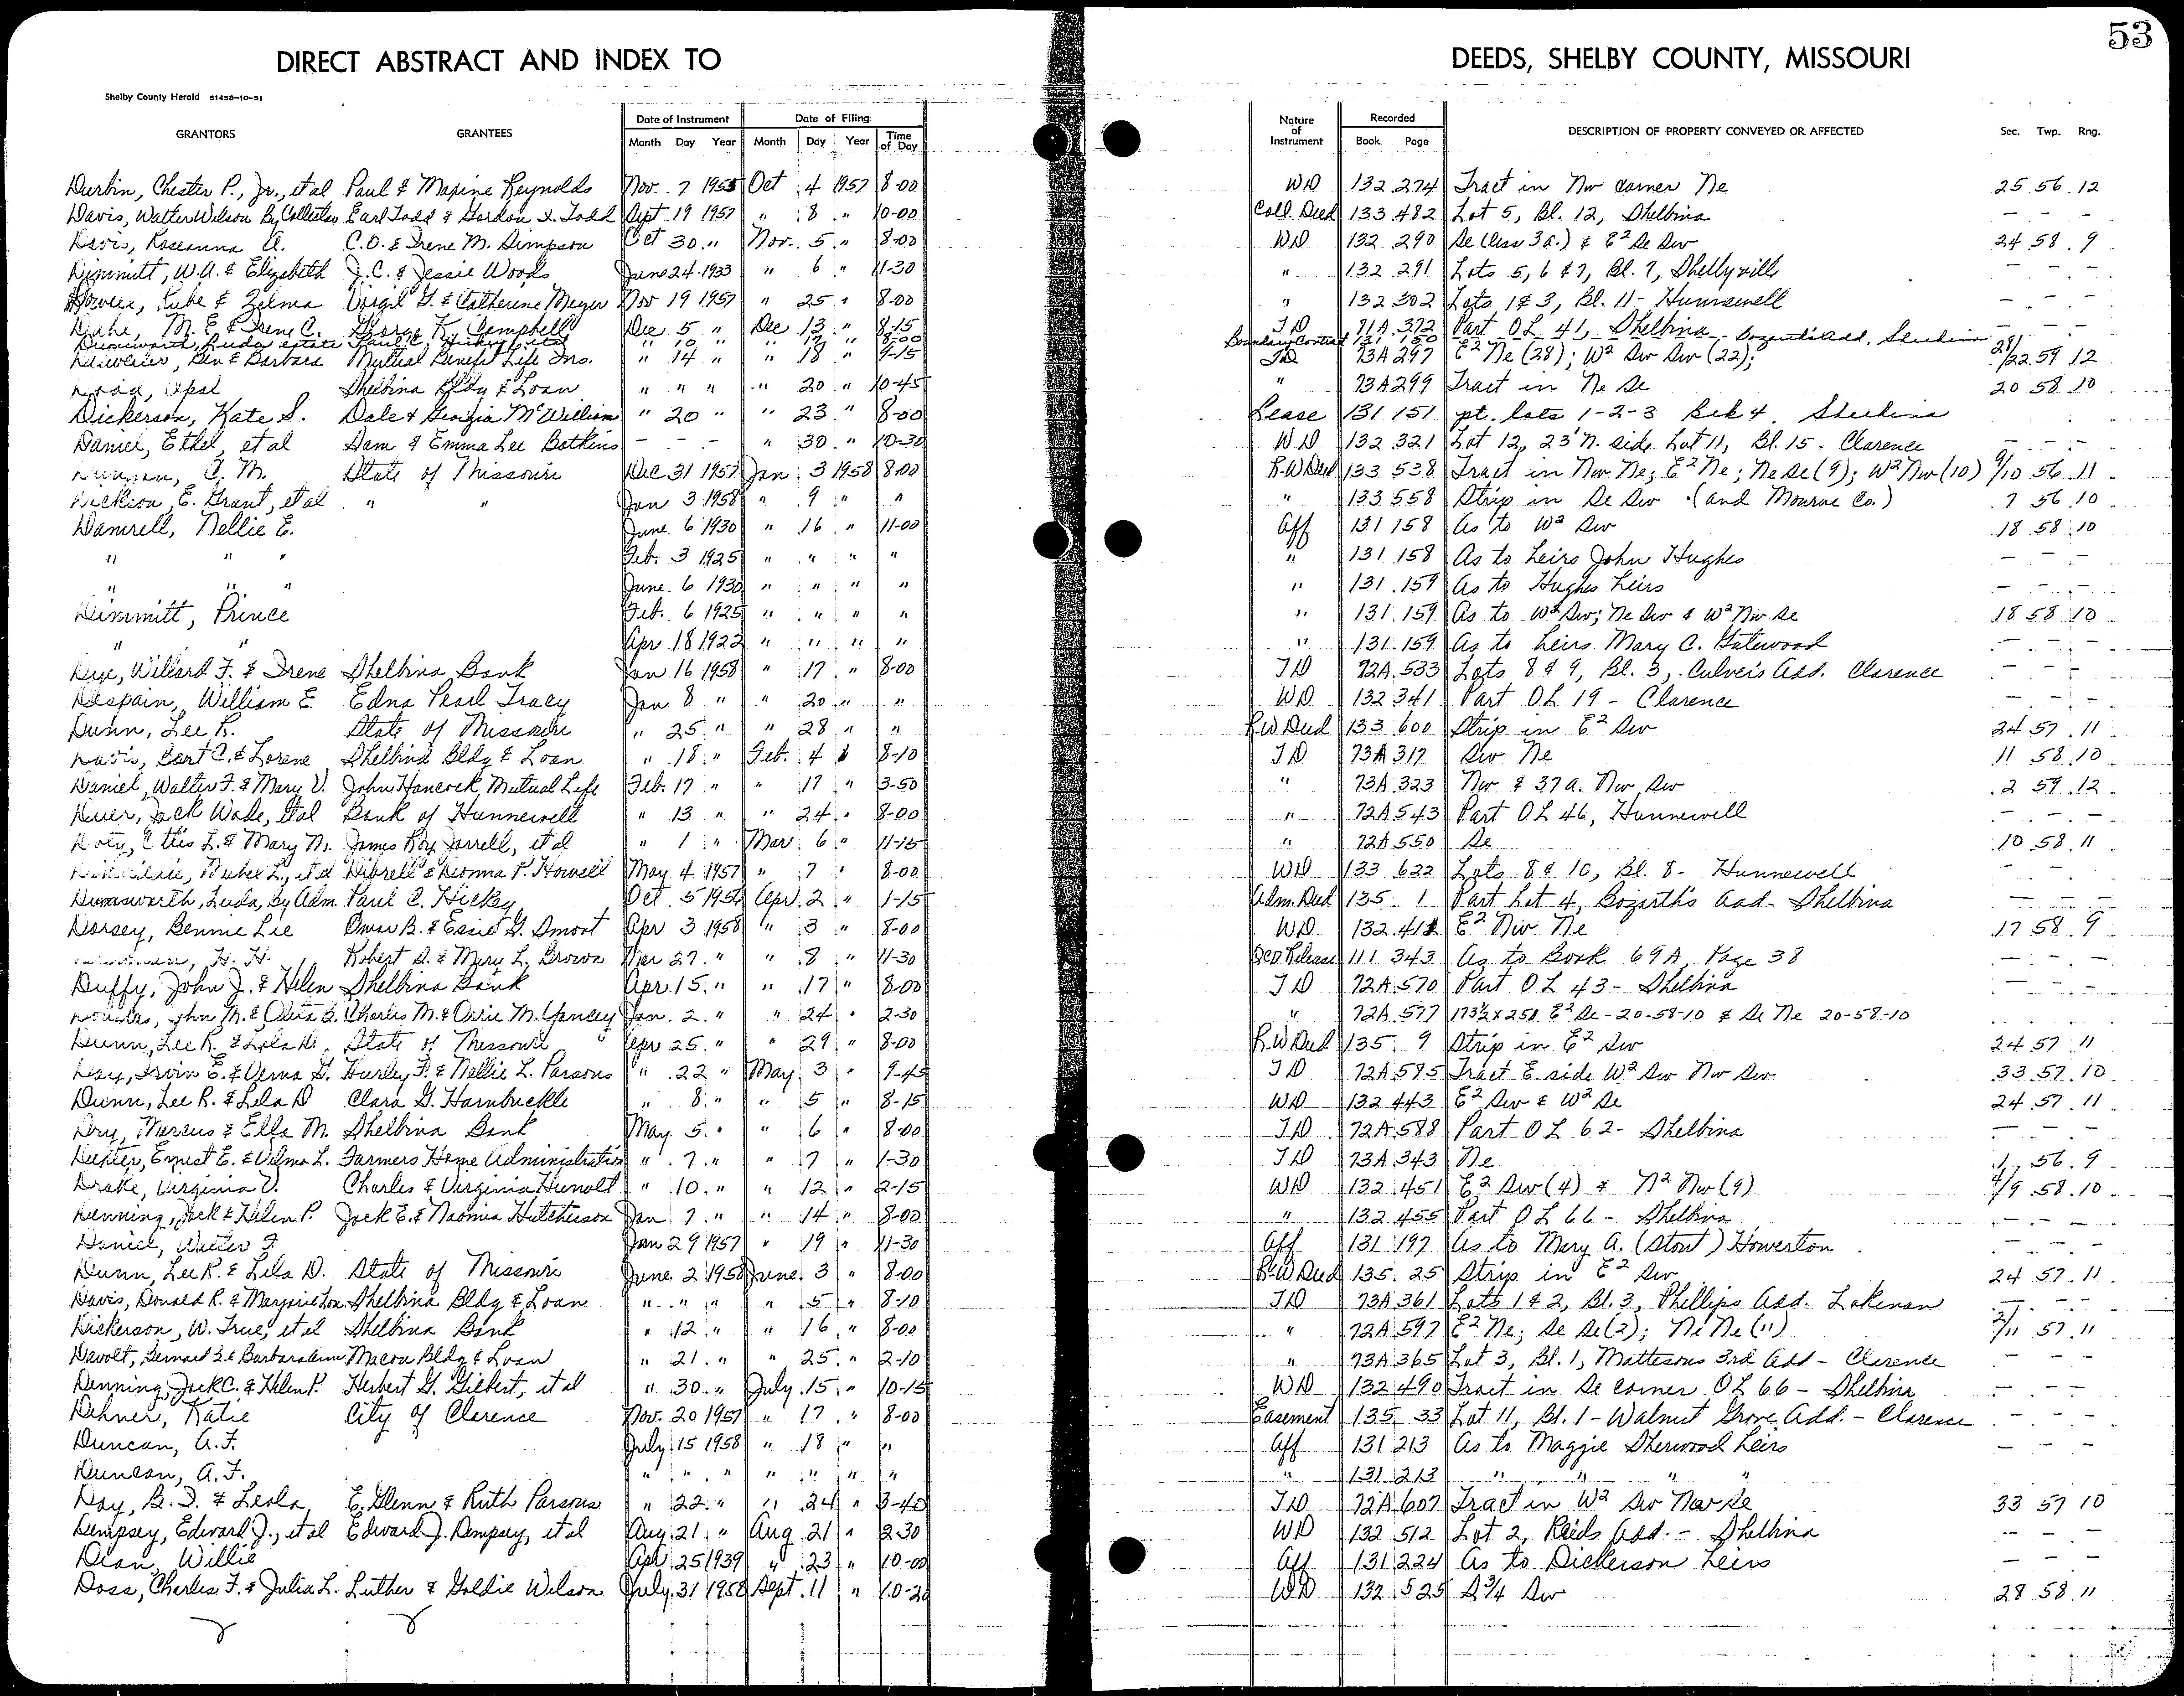 53
DIRECT ABSTRACT AND INDEX TO DEEDS, SHELBY COUNTY, MISSOURI
Shelby County Herald 51458-10-51
GRANTORS GRANTEES Date of Instrument Month Day Year Date of Filing Month Day Year Time of Day Nature of Instrument Recorded Book Page DESCRIPTION OF PROPERTY CONVEYED OR AFFECTED Sec. Twp. Rng.
Durbin, Chester P., Jr., et al Paul & Maxine Reynolds Nov. 7 1955 Oct 4 1957 8-00 WD 132 274 Tract in Nw corner Ne 25 56 12
Davis, Walter Wilson By Collector Earl Todd & Gordon I. Todd Sept 19 1957 " 8 " 10-00 Coll. Deed 133 482 Lot 5, Bl. 12, Shelbina - - -
Davis, Roseanna A. C.O. & Irene M. Simpson Oct 30 " Nov. 5 " 8-00 WD 132 290 Se (less 3a.) & E² Se Sw 24 58 9
Dimmitt, W.A. & Elizabeth J.C. & Jessie Woods June 24 1933 " 6 " 11-30 " 132 291 Lots 5, 6 & 7, Bl. 7, Shelbyville - - -
Rube & Zelma Virgil G. & Catherine Meyer Nov 19 1957 " 25 " 8-00 " 132 302 Lots 1 & 3, Bl. 11 - Hunnewell - - -
M. E. & Irene C. George K. Campbell Dec. 5 " Dec 13 " 8-15 TD 71A 372 Part OL 41, Shelbina - - -
Luda estate Paul C. Hickey et al " 10 " " 17 " 8-00 Boundary Contract 131 150 Bozarth's Add. Shelbina
Ben & Barbara Mutual Benefit Life Ins. " 14 " " 18 " 9-15 TD 73A 297 E² Ne (28); W² Sw Sw (22); 28/22 59 12
Opal Shelbina Bldg & Loan " " " " 20 " 10-45 " 73A 299 Tract in Ne Se 20 58 10
Dickerson, Kate S. Dale & Georgia McWilliam " 20 " " 23 " 8-00 Lease 131 151 pt. lots 1-2-3 Blk 4, Shelbina
Daniel, Ethel, et al Sam & Emma Lee Botkins - - - " 30 " 10-30 WD 132 321 Lot 12, 23' N. side Lot 11, Bl. 15 - Clarence - - -
C. M. State of Missouri Dec. 31 1957 Jan. 3 1958 8-00 R.W Deed 133 538 Tract in Nw Ne; E² Ne; Ne Se (9); W² Nw (10) 9/10 56 11
Dickson, E. Grant, et al " " Jan 3 1958 " 9 " " " 133 558 Strip in Se Sw (and Monroe Co.) 7 56 10
Damrell, Nellie E. June 6 1930 " 16 " 11-00 Aff 131 158 As to W² Sw 18 58 10
" " " Feb. 3 1925 " " " " " 131 158 As to heirs John Hughes - - -
" " " June 6 1930 " " " " " 131 159 As to Hughes heirs - - -
Dimmitt, Prince Feb. 6 1925 " " " " " 131 159 As to W² Sw; Ne Sw & W² Nw Se 18 58 10
" " Apr. 18 1922 " " " " " 131 159 As to heirs Mary C. Gatewood - - -
Dye, Willard F. & Irene Shelbina Bank Jan. 16 1958 " 17 " 8-00 TD 72A 533 Lots 8 & 9, Bl. 3, Culver's Add. Clarence - - -
Despain, William E. Edna Pearl Tracy Jan. 8 " " 20 " " WD 132 341 Part OL 19 - Clarence - - -
Dunn, Lee R. State of Missouri " 25 " " 28 " " R.W Deed 133 600 Strip in E² Sw 24 57 11
Davis, Bert C. & Lorene Shelbina Bldg & Loan " 18 " Feb. 4 8-10 TD 73A 317 Sw Ne 11 58 10
Daniel, Walter F. & Mary V. John Hancock Mutual Life Feb. 17 " " 17 " 3-50 " 73A 323 Nw & 37a. Nw Sw 2 59 12
Jack Wade, et al Bank of Hunnewell " 13 " " 24 " 8-00 " 72A 543 Part OL 46, Hunnewell - - -
Doty, Ottis L. & Mary M. James Roy Jarrell, et al " 1 " Mar. 6 " 11-15 " 72A 550 Se 10 58 11
et al Howell May 4 1957 " 7 " 8-00 WD 133 622 Lots 8 & 10, Bl. 8 - Hunnewell - - -
Luda, By Adm. Paul C. Hickey Oct. 5 1954 Apr. 2 " 1-15 Adm. Deed 135 1 Part Lot 4, Bozarth's Add - Shelbina - - -
Dorsey, Bennie Lee Omar B. & Essie G. Smoot Apr. 3 1958 " 3 " 8-00 WD 132 411 E² Nw Ne 17 58 9
H. H. Robert D. & Mary L. Brown 27 " " 8 " 11-30 Release 111 343 As to Book 69A, Page 38 - - -
Duffy, John J. & Helen Shelbina Bank Apr. 15 " " 17 " 8-00 TD 72A 570 Part OL 43 - Shelbina - - -
Douglas, John M. & Oleta B. Charles M. & Orrie M. Yancey Jan. 2 " " 24 " 2-30 " 72A 577 173½ x 251 E² Se - 20-58-10 & Se Ne 20-58-10
Dunn, Lee R. & Lela D. State of Missouri Apr 25 " " 29 " 8-00 R.W Deed 135 9 Strip in E² Sw 24 57 11
Day, Irvin E. & Verna G. Hurley F. & Nellie L. Parsons " 22 " May 3 " 9-45 TD 72A 585 Tract E. side W² Sw Nw Sw 33 57 10
Dunn, Lee R. & Lela D Clara G. Hornbuckle " 8 " " 5 " 8-15 WD 132 443 E² Sw & W² Se 24 57 11
Dry, Marcus & Ella M. Shelbina Bank May 5 " " 6 " 8-00 TD 72A 588 Part OL 62 - Shelbina - - -
Ernest E. & Velma L. Farmers Home Administration " 7 " " 7 " 1-30 TD 73A 343 Ne 1 56 9
Drake, Virginia V. Charles & Virginia Hunolt " 10 " " 12 " 2-15 WD 132 451 E² Sw (4) & N² Nw (9) 4/9 58 10
Denning, Jack & Helen P. Jock E. & Naomia Hutcherson Jan. 7 " " 14 " 8-00 " 132 455 Part OL 66 - Shelbina - - -
Daniel, Walter F. Jan 29 1957 " 19 " 11-30 Aff 131 197 As to Mary A. (Stout) Howerton - - -
Dunn, Lee R. & Lela D. State of Missouri June 2 1958 June 3 " 8-00 R.W Deed 135 25 Strip in E² Sw 24 57 11
Davis, Donald R. & Marjorie Lou Shelbina Bldg & Loan " " " " 5 " 8-10 TD 73A 361 Lots 1 & 2, Bl. 3, Phillips Add. Lakenan - - -
Dickerson, W. True, et al Shelbina Bank " 12 " " 16 " 8-00 " 72A 597 E² Ne; Se Se (2); Ne Ne (11) 2/11 57 11
Davolt, Bernard & Barbara Ann Macon Bldg & Loan " 21 " " 25 " 2-10 " 73A 365 Lot 3, Bl. 1, Mattesons 3rd Add - Clarence - - -
Denning, Jack C. & Helen P. Herbert G. Gilbert, et al " 30 " July 15 " 10-15 WD 132 490 Tract in Se corner OL 66 - Shelbina - - -
Dehner, Katie City of Clarence Nov. 20 1957 " 17 " 8-00 Easement 135 33 Lot 11, Bl. 1 - Walnut Grove Add. - Clarence - - -
Duncan, A.F. July 15 1958 " 18 " " Aff 131 213 As to Maggie Sherwood heirs - - -
Duncan, A.F. " " " " " " " " 131 213 " " " "
Day, B. I. & Leola E. Glenn & Ruth Parsons " 22 " " 24 " 3-40 TD 72A 607 Tract in W² Sw Nw Se 33 57 10
Dempsey, Edward J., et al Edward J. Dempsey, et al Aug. 21 " Aug 21 " 2-30 WD 132 512 Lot 2, Reids Add. - Shelbina - - -
Dean, Willie Apr. 25 1939 " 23 " 10-00 Aff 131 224 As to Dickerson heirs - - -
Doss, Charles F. & Julia L. Luther & Goldie Wilson July 31 1958 Sept 11 " 10-20 WD 132 525 S ¾ Sw 28 58 11